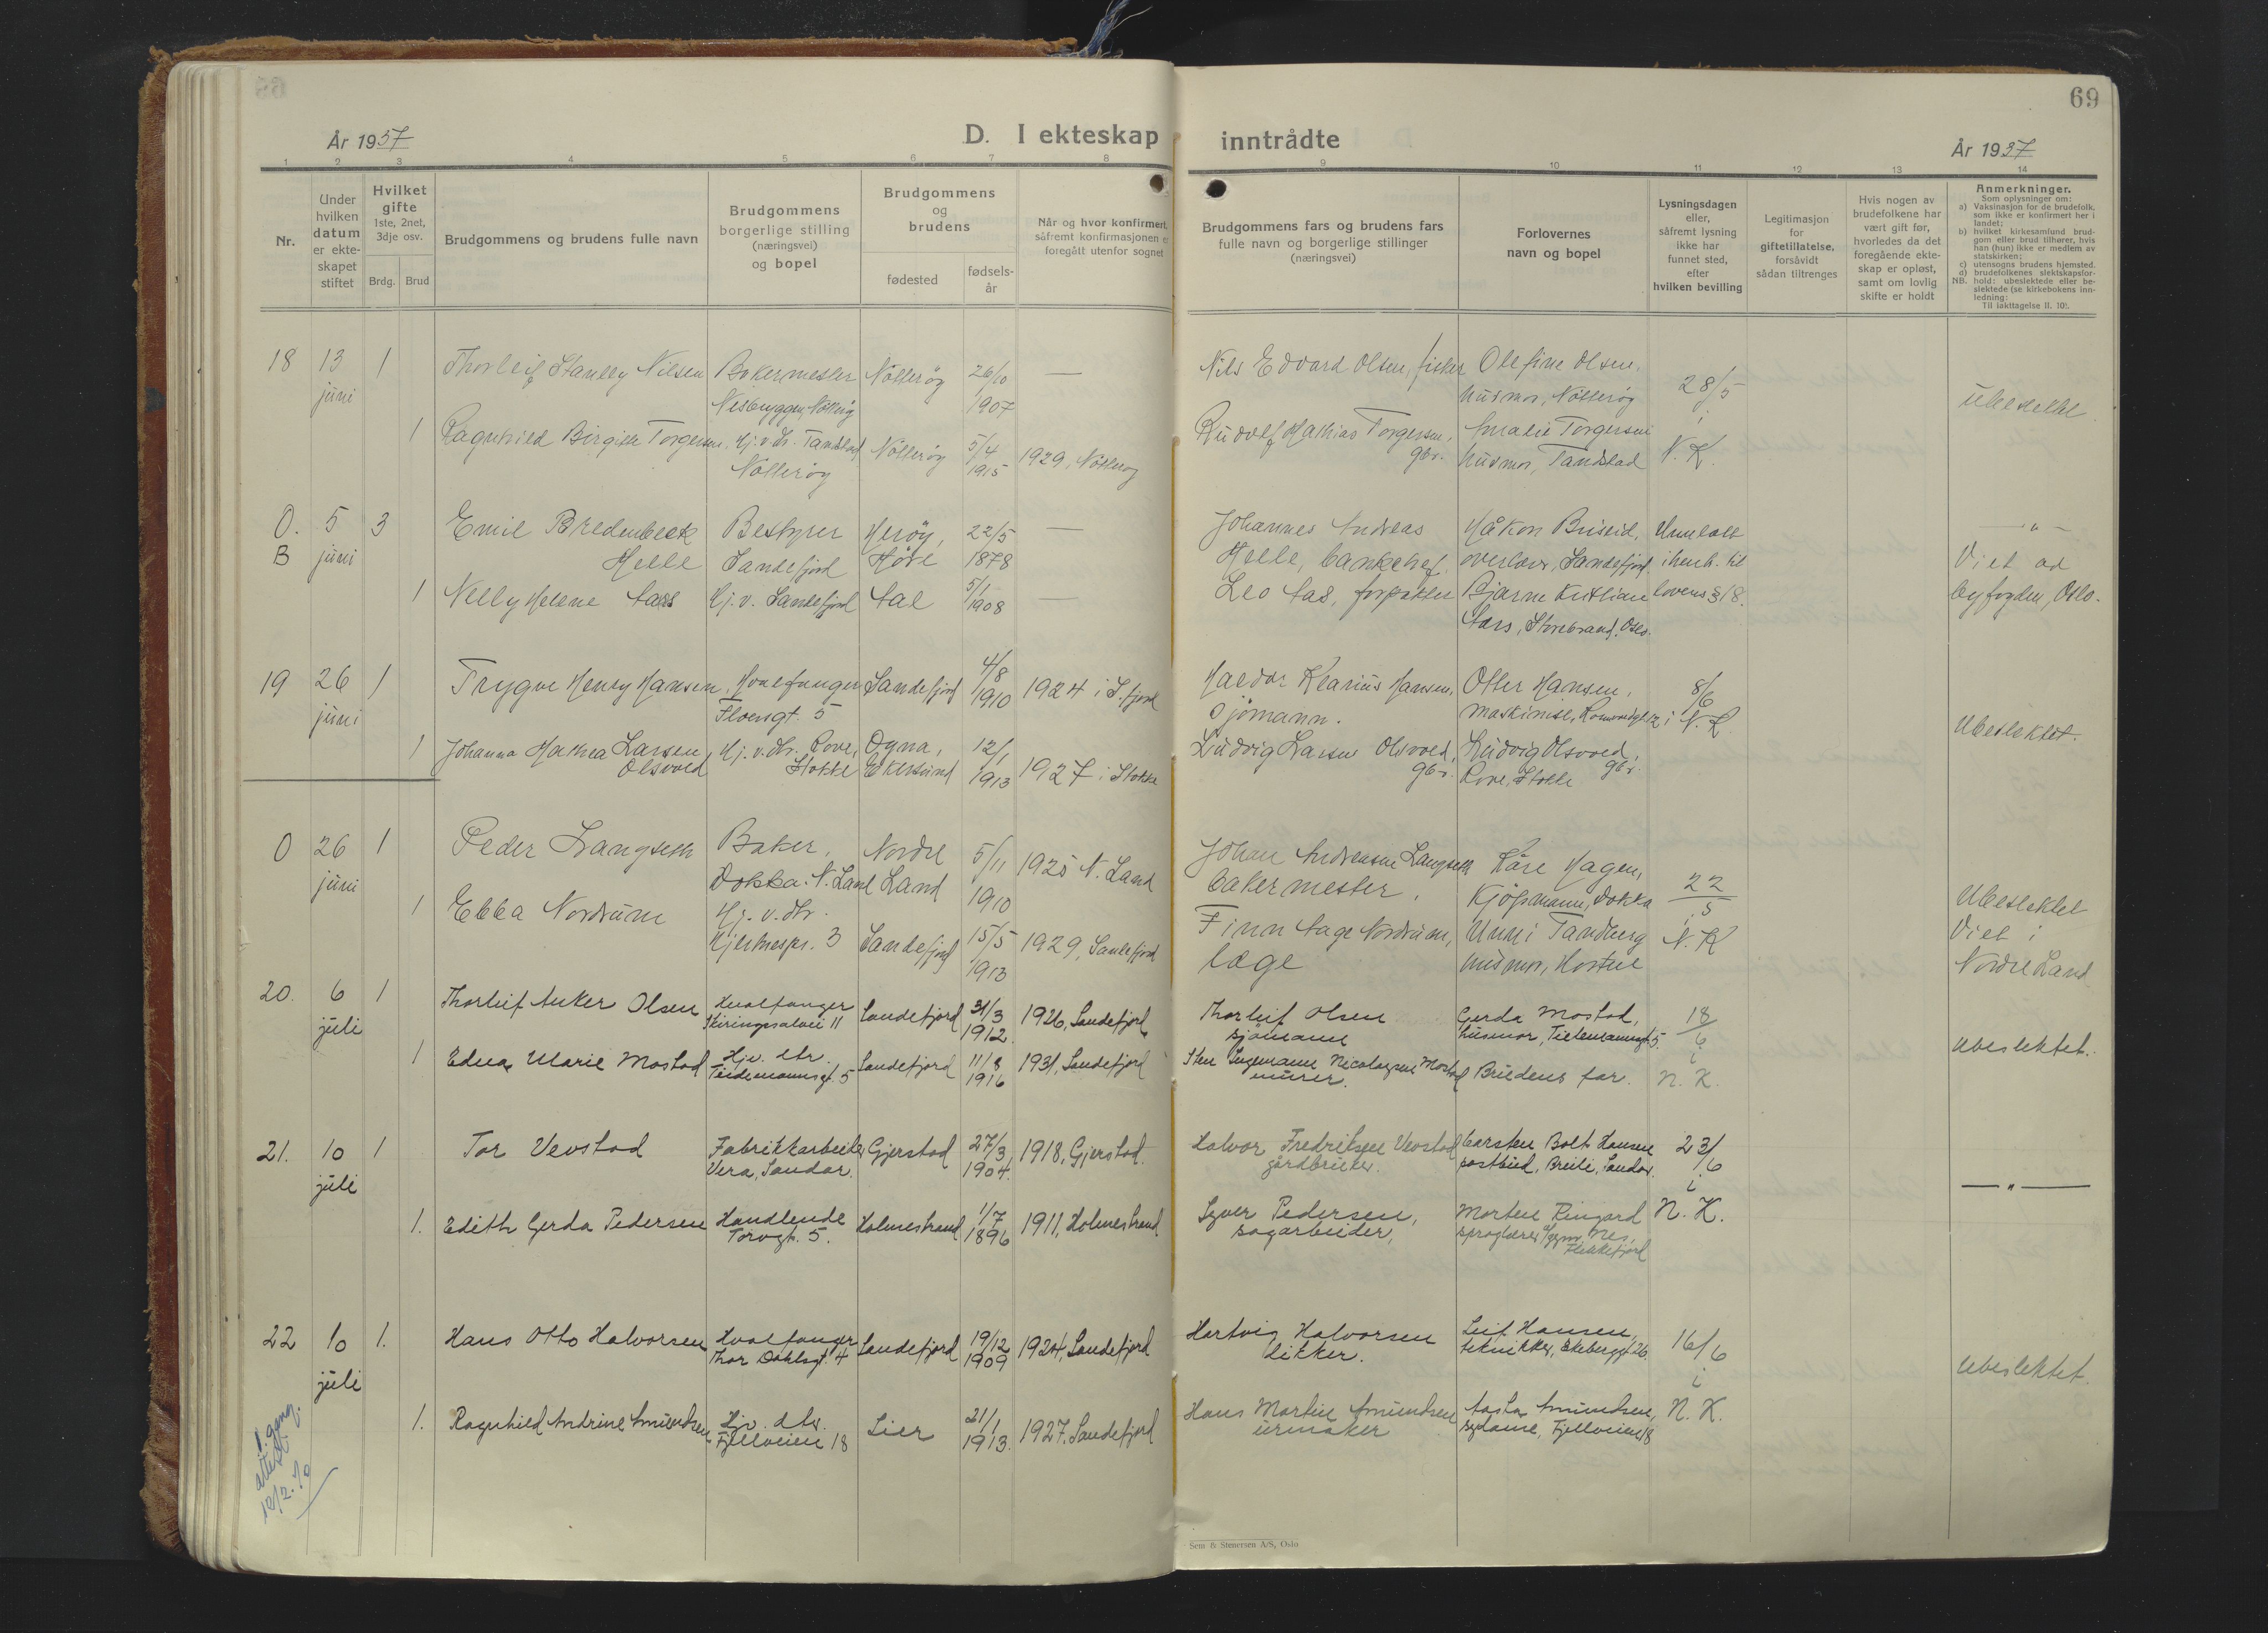 69
År 1937
D. I ekteskap inntrådte
År 1937
1 2 3 4 5 6 7 8 9 10 11 12 13 14
Nr.
Under
hvilken
datum
er ekte-
skapet
stiftet
Hvilket
gifte
1ste, 2net,
3dje osv.
Brdg.
Brud
Brudgommens og brudens fulle navn
Brudgommens
borgerlige stilling
(næringsvei)
og bopel
Brudgommens
og
brudens
fødested
fødsels-
år
Når og hvor konfirmert,
såfremt konfirmasjonen er
foregått utenfor sognet
Brudgommens fars og brudens fars
fulle navn og borgerlige stillinger
(næringsvei)
Forlovernes
navn og bopel
Lysningsdagen
eller,
såfremt lysning
ikke har
funnet sted,
efter
hvilken bevilling
Legitimasjon
for
giftetillatelse,
forsåvidt
sådan tiltrenges
Hvis nogen av
brudefolkene har
vært gift før,
hvorledes da det
foregående ekte-
skap er opløst,
samt om lovlig
skifte er holdt
Anmerkninger.
Som oplysninger om:
a) Vaksinasjon for de brudefolk,
som ikke er konfirmert her i
landet;
b) hvilket kirkesamfund brud-
gom eller brud tilhører, hvis
han (hun) ikke er medlem av
statskirken;
c) utensogns brudens hjemsted.
d) brudefolkenes slektskapsfor-
NB. hold: ubeslektede eller be-
slektede (se kirkebokens inn-
ledning:
Til iakttagelse II. 10).
18 13 juni 1
Thorleif Stanley Nilsen
Bakermester
Nesbryggen, Nøtterøy
Nøtterøy
26/10 1907
—
Nils Edvard Olsen, fisker
Olefine Olsen,
husmor, Nøtterøy
28/5
i
N. K.
ubeslektet.
1
Ragnhild Birgitte Torgersen,
Hj. v. dtr. Tandstad
Nøtterøy
Nøtterøy
5/4 1915
1929, Nøtterøy
Rudolf Mathias Torgersen,
gbr.
Amalie Torgersen
husmor, Tandstad
O. B 5 juni 3
Emil Bredenbeck
Melle
Bestyrer
Sandefjord
Herøy,
Møre
22/5 1878
—
Johannes Andreas
Melle, bankchef.
Håkon Briseid,
overlærer, Sandefjord.
Unnlatt
i henh. til
lovens § 18.
— " —
Viet av
byfogden, Oslo.
1
Nelly Helene Aars
Hj. v. Sandefjord
Aal
5/1 1908
—
Leo Aas, forpakter
Bjarne Kristian
Aars, Storebrand, Oslo.
19 26 juni 1
Trygve Henry Hansen,
Hvalfanger
Floensgt. 5
Sandefjord
4/8 1910
1924 i S.fjord
Haldor Klarius Hansen,
sjømann.
Otter Hansen,
8/6
i N. K
Ubeslektet.
1
Johanna Mathea Larsen
Olsvold
Hj. v. dtr. Rove,
Stokke
Ogna,
Ekersund
12/1 1913
1927 i Stokke
Ludvig Larsen Olsvold,
gbr.
Ludvig Olsvold,
gbr.
Rove, Stokke
O 26 juni 1
Peder Langseth
Baker,
Dokka. N. Land
Nordre
Land
5/11 1910
1925 N. Land
Johan Andreasen Langseth
bakermester,
Kåre Hagen,
Kjøpmann, Dokka
22/5
i
N. K
Ubeslektet
Viet i
Nordre Land
1
Ebba Nordrum
Hj. v. dtr.
Hjertnespr. 3
Sandefjord
15/5 1913
1929, Sandefjord
Finn Aage Nordrum,
læge
Unni Tandberg
husmor,
20. 6 juli 1
Thorleif Anker Olsen
Hvalfanger
Skiringssalvei 11
Sandefjord
31/3 1912.
1926, Sandefjord
Thorleif Olsen
sjømann
Gerda Mostad,
husmor, Tidemannsgt 5.
18/6
i
N. K.
Ubeslektet.
1
Edna Marie Mostad
Hjv. dtr.
Teidemannsgt. 5
Sandefjord
11/8 1916
1931, Sandefjord
Sten Ingemann Nicolaysen Mostad
murer.
Brudens far.
21. 10 juli 1
Tor Vevstad
Fabrikkarbeider
Vera, Sandar.
Gjerstad
27/3 1904.
1918, Gjerstad.
Halvor Fredriksen Vevstad
gårdbruker.
Carsten Bolt Hansen
postbud, Breili, Sandar.
23/6
i
N. K.
— " —
1.
Edith Gerda Pedersen
Handlende
Torvgt. 5.
Holmestrand
1/7 1896
1911, Holmestrand
Syver Pedersen,
sagarbeider,
Morten Ringard
Nes,
Flekkefjord
22 10 juli 1.
Hans Otto Halvorsen
Hvalfanger
Thor Dahlsgt. 4
Sandefjord
19/12 1909
1924, Sandefjord
Hartvig Halvorsen
dikker.
Leif Hansen,
tekniker, Ekebergt. 26.
16/6
i
N. K.
Ubeslektet.
1.
Ragnhild Andrine Amundsen
Hjv. dtr.
Fjellveien 18
Lier
21/1 1913.
1927, Sandefjord
Hans Martin Amundsen
urmaker
Aasta Amundsen,
sydame, Fjellveien 18
1 gang.
attest.
12/2. 70
Sem & Stenersen A/S, Oslo